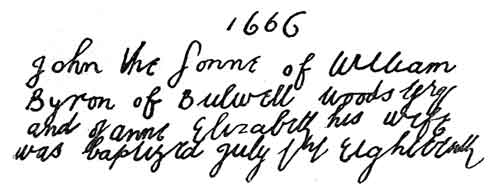 1666
John the Sonne of William
Byron of Bulwell woods
and Janne Elizabeth his wife
was baptized July the Eighteenth